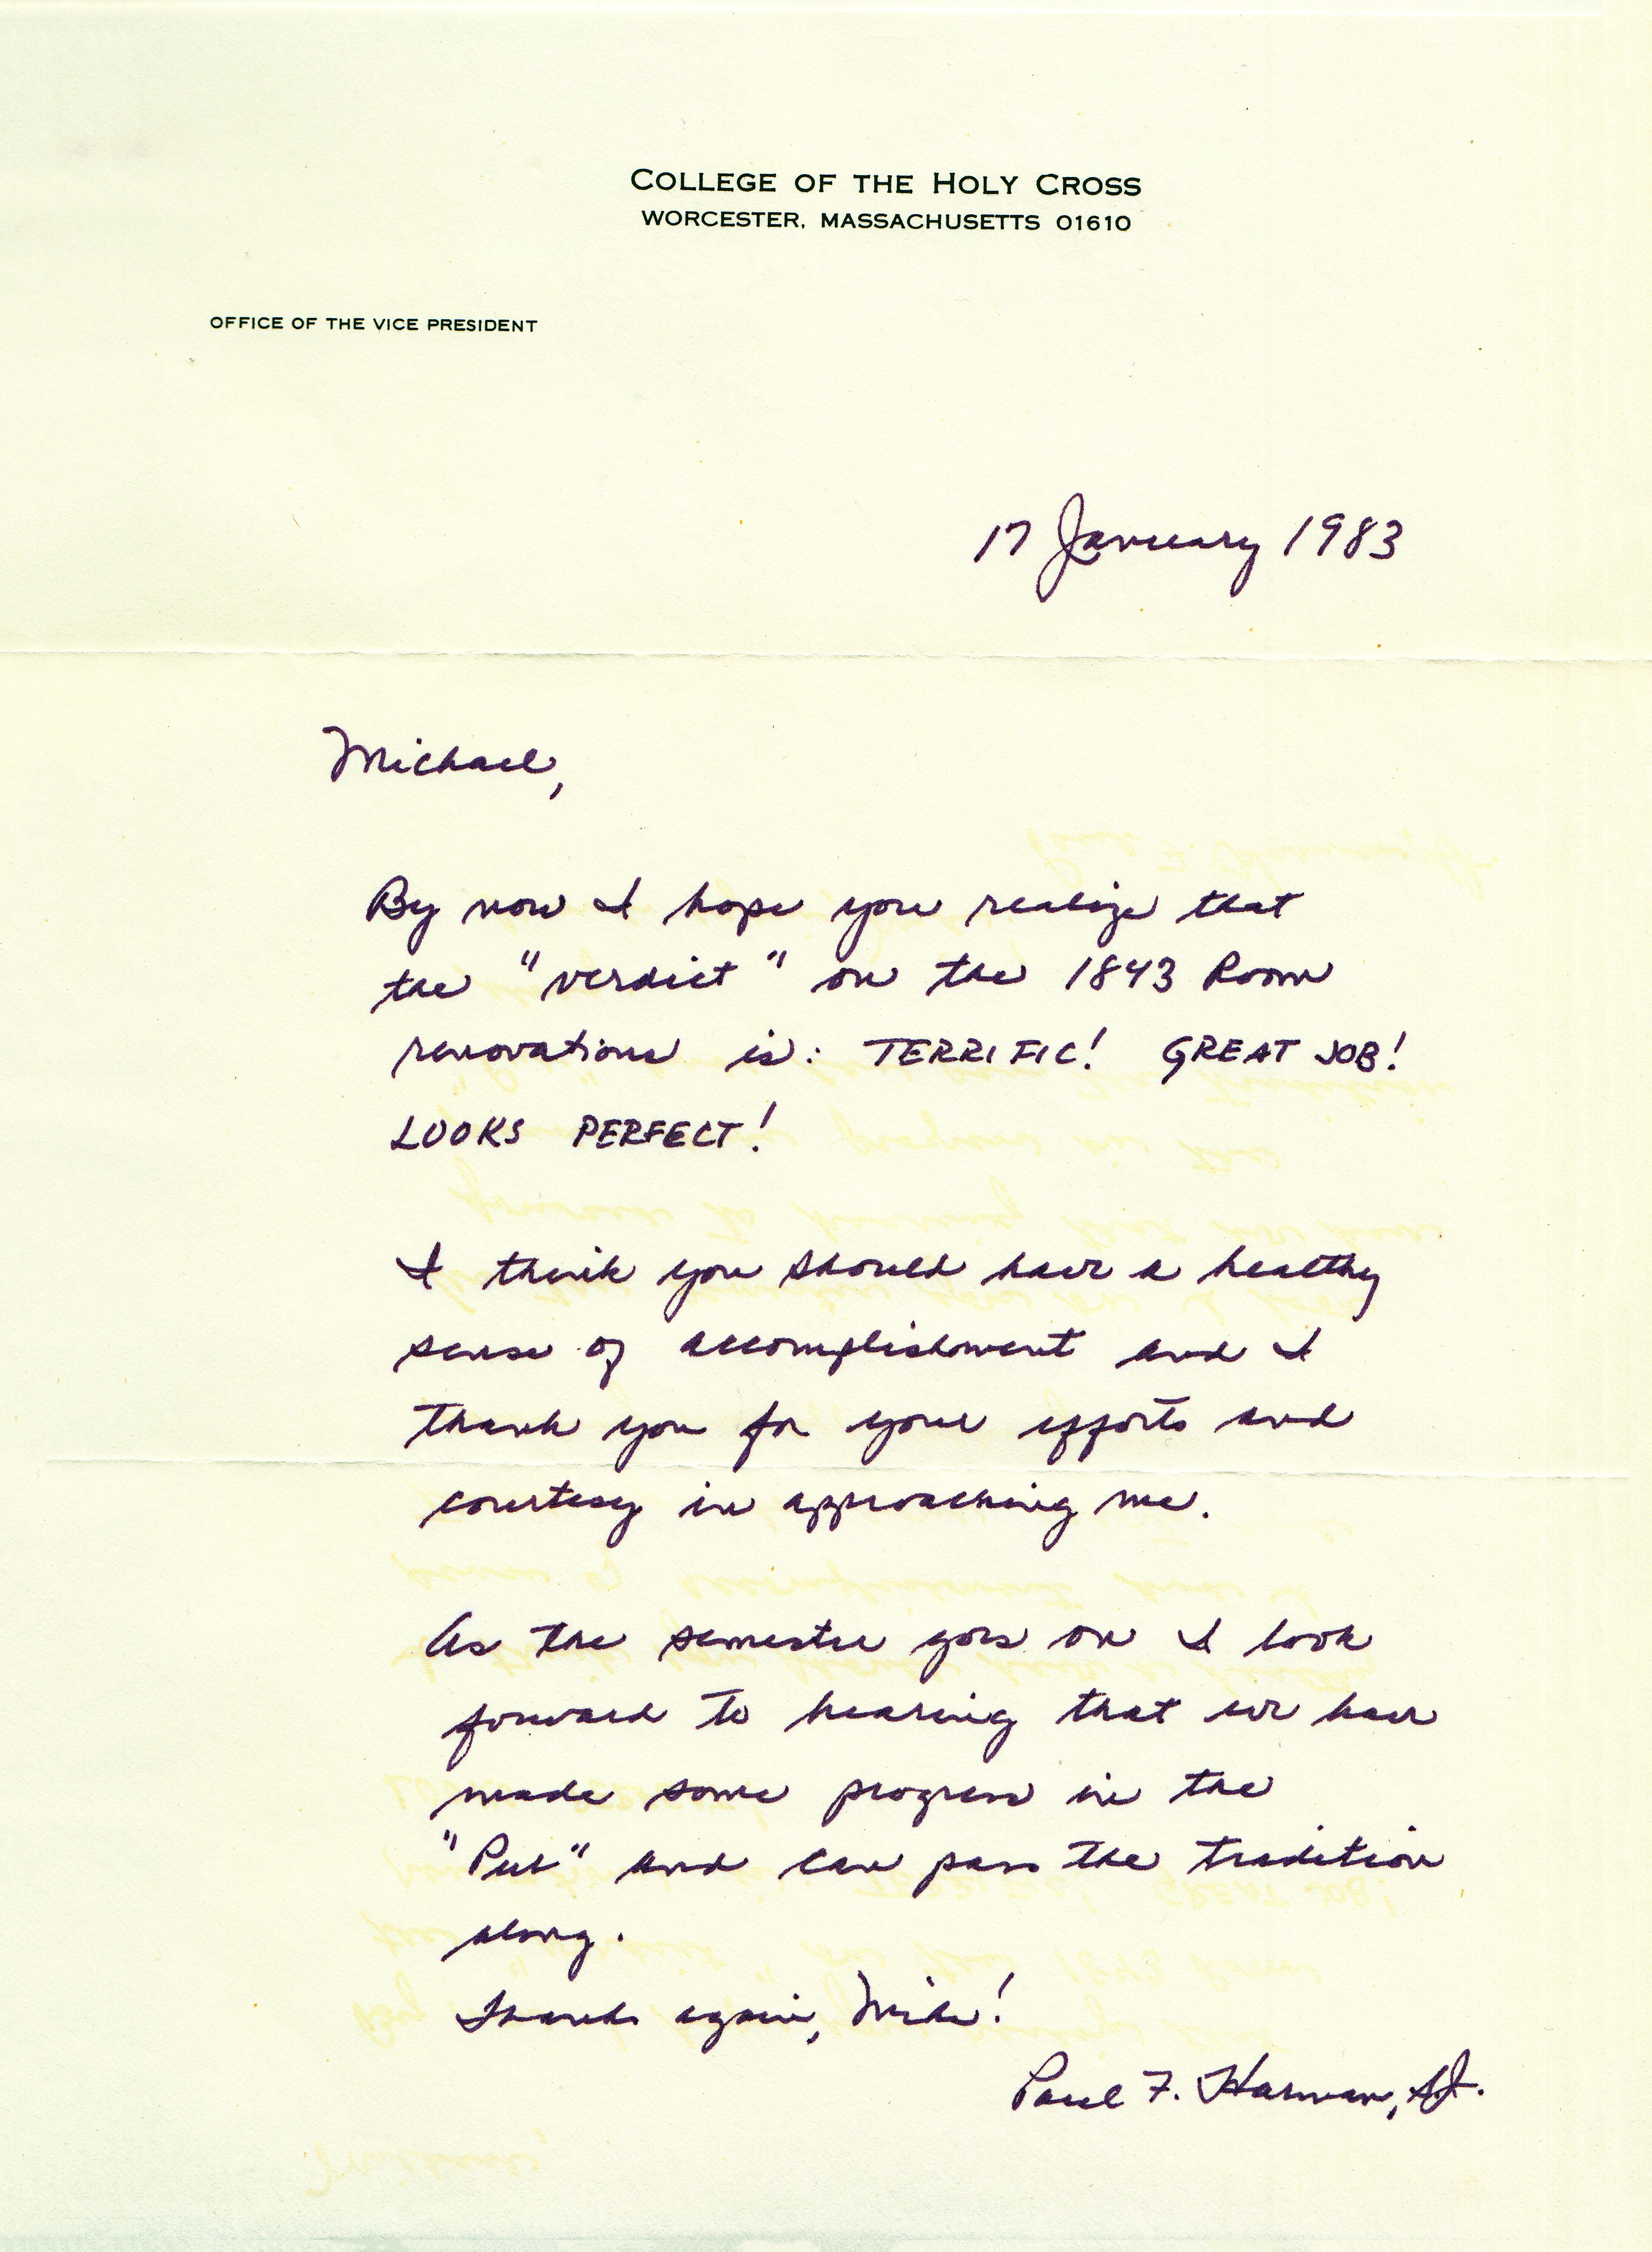 COLLEGE OF THE HOLY CROSS
WORCESTER, MASSACHUSETTS 01610
OFFICE OF THE VICE PRESIDENT
17 January 1983
Michael,
By now I hope you realize that
the "verdict" on the 1843 Room
renovations is: TERRIFIC! GREAT JOB!
LOOKS PERFECT!
I think you should have a healthy
sense of accomplishment and I
thank you for your efforts and
courtesy in approaching me.
As the semester goes on I look
forward to hearing that we have
made some progress in the
"Pub" and can pass the tradition
along.
Thanks again, Mike!
Paul F. Harman, S.J.